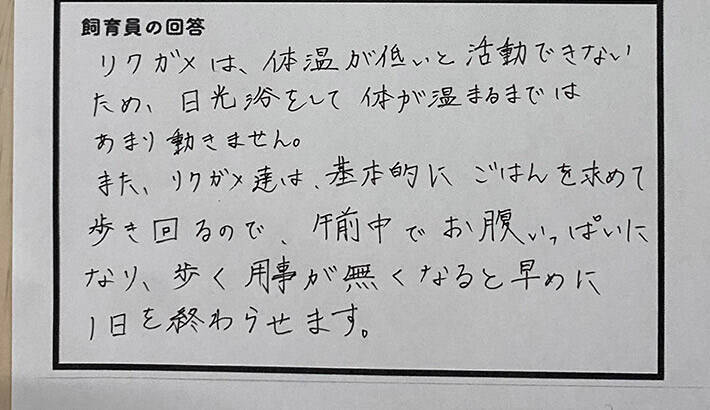 飼育員の回答
リクガメは、体温が低いと活動できない
ため、日光浴をして体が温まるまでは
あまり動きません。
また、リクガメ達は、基本的にごはんを求めて
歩き回るので、午前中でお腹いっぱいに
なり、歩く用事が無くなると早めに
1日を終わらせます。